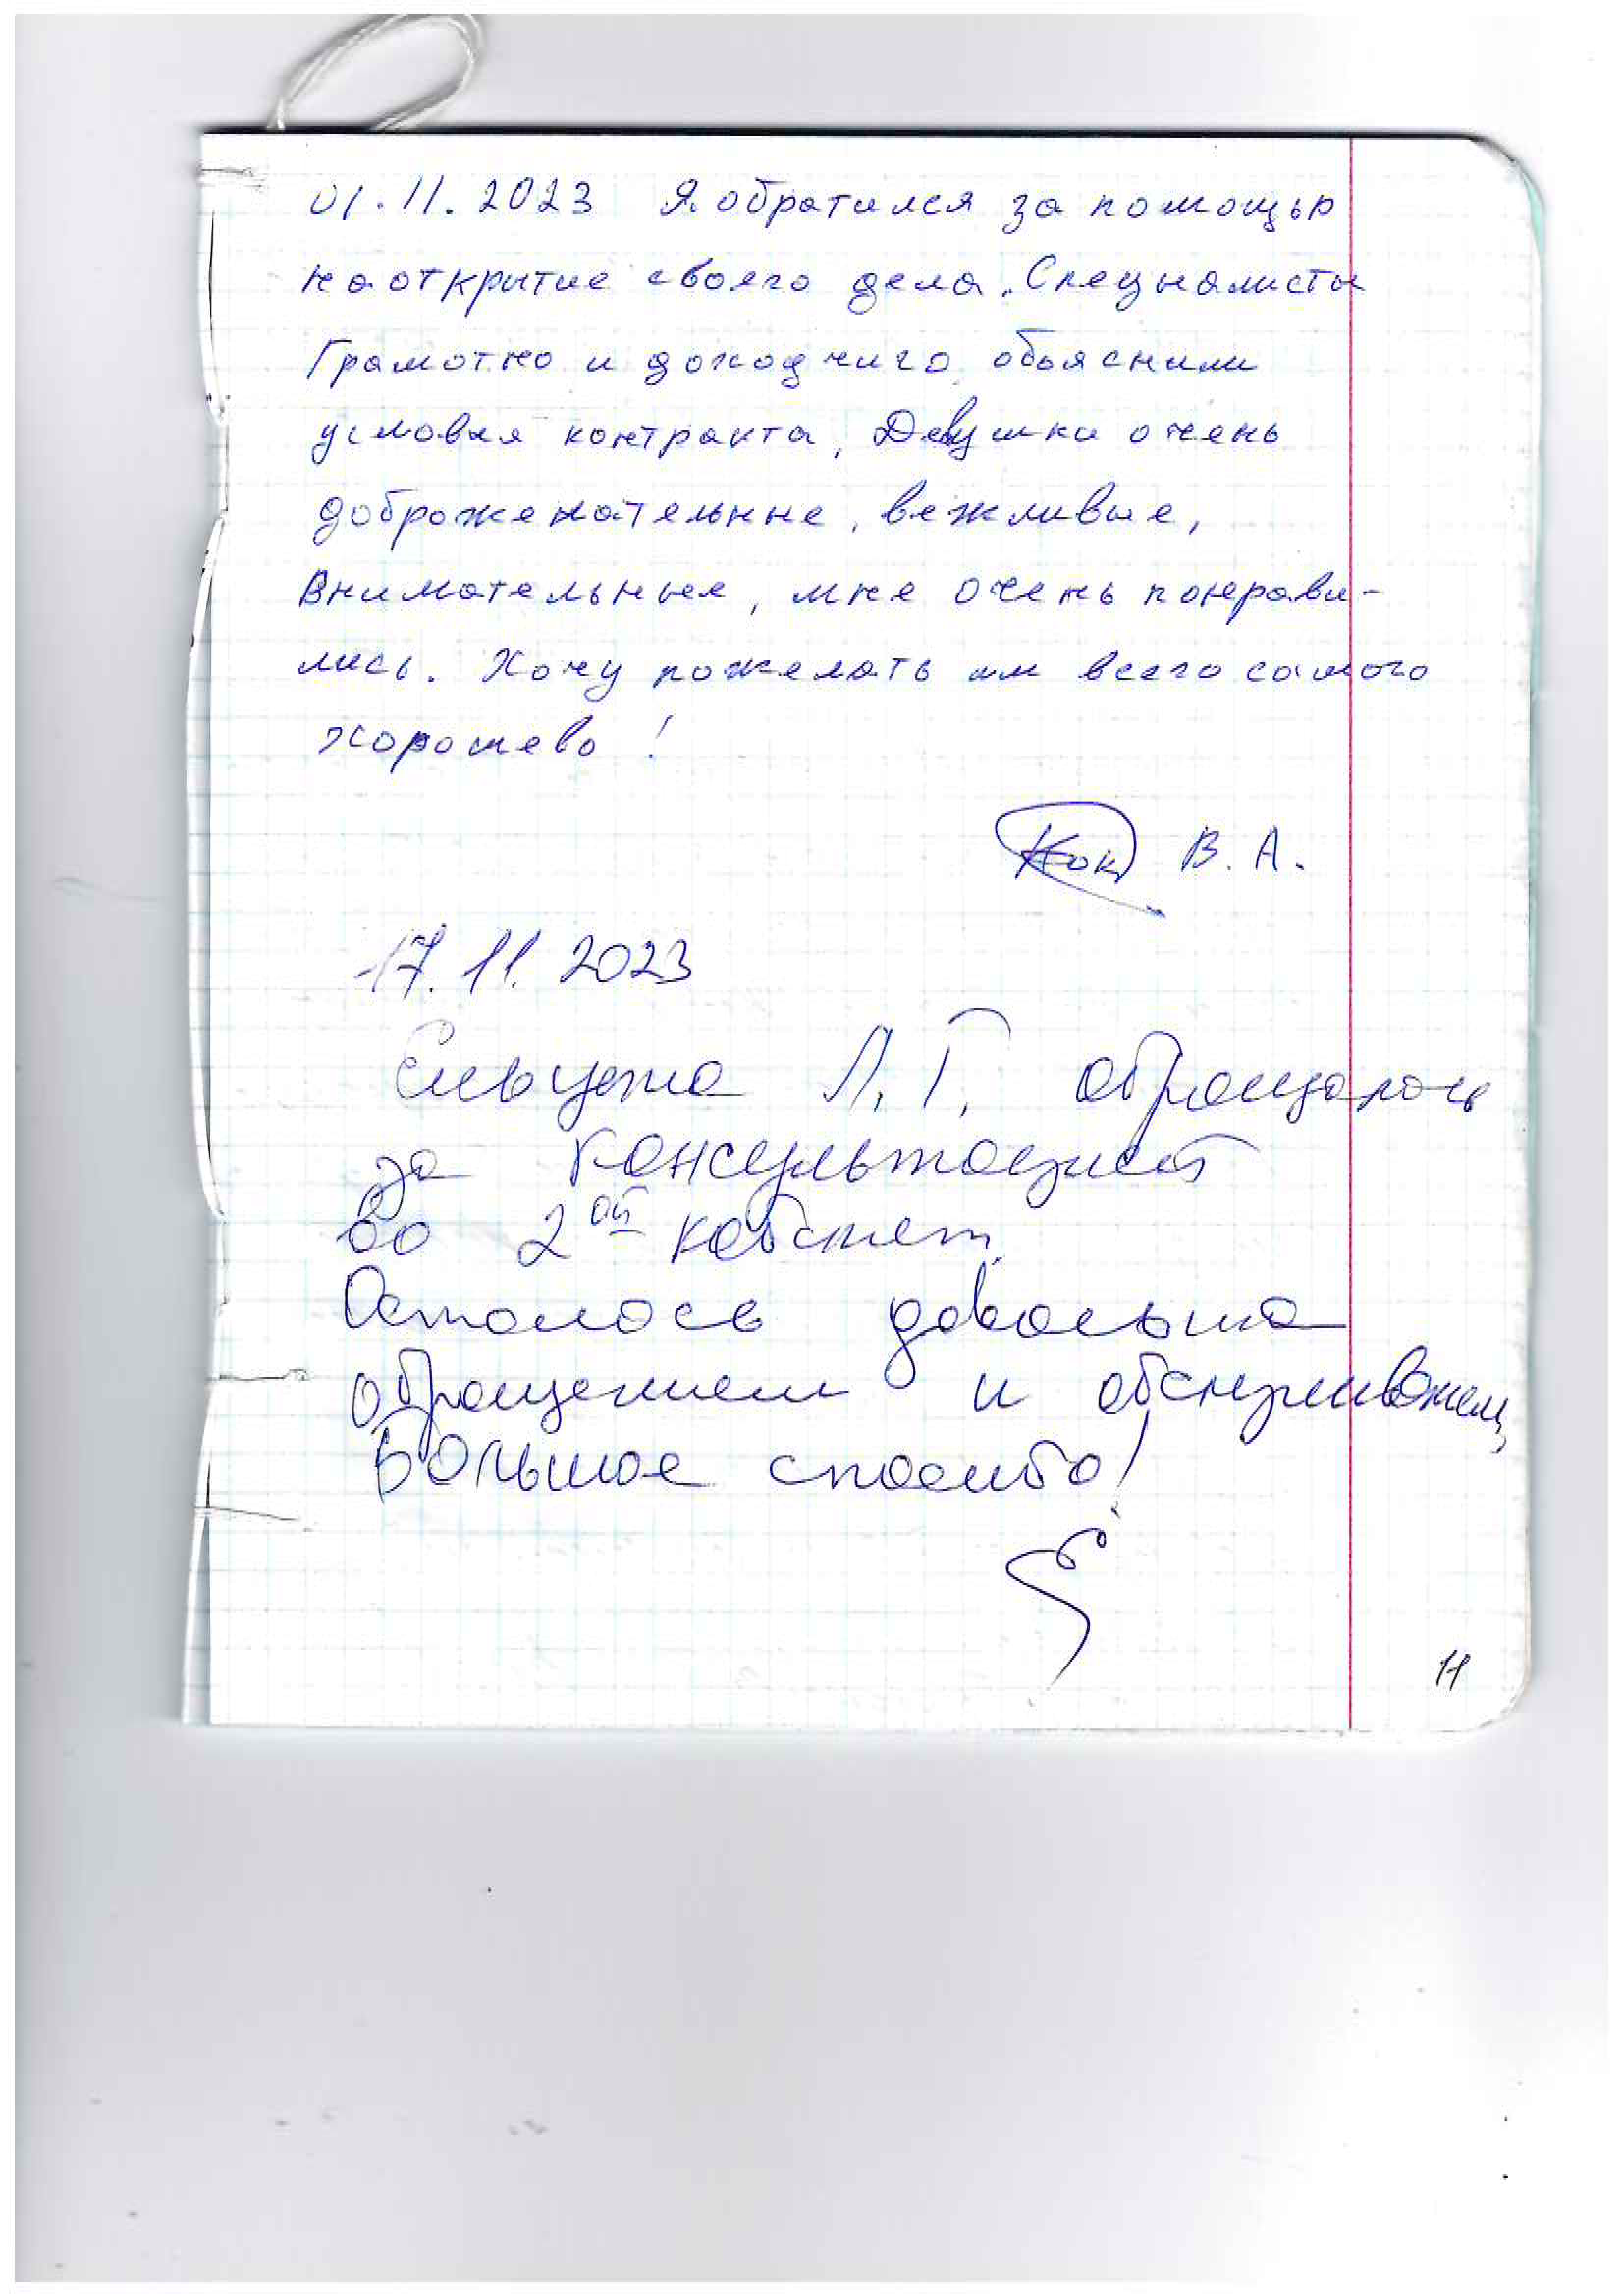 01.11.2023 Я обратился за помощью
на открытие своего дела. Специалисты
Грамотно и доходчиго объяснили
условия контракта, Девушки очень
доброжелательные, вежливые,
внимательные, мне очень понрави-
лись. Хочу пожелать им всего самого
хорошево!
В. А.
17.11.2023
Л. Г. обращалась
за консультацией
во 2ой кабинет.
Осталась довольна
обращением и обслуживанием,
Большое спасибо!
11